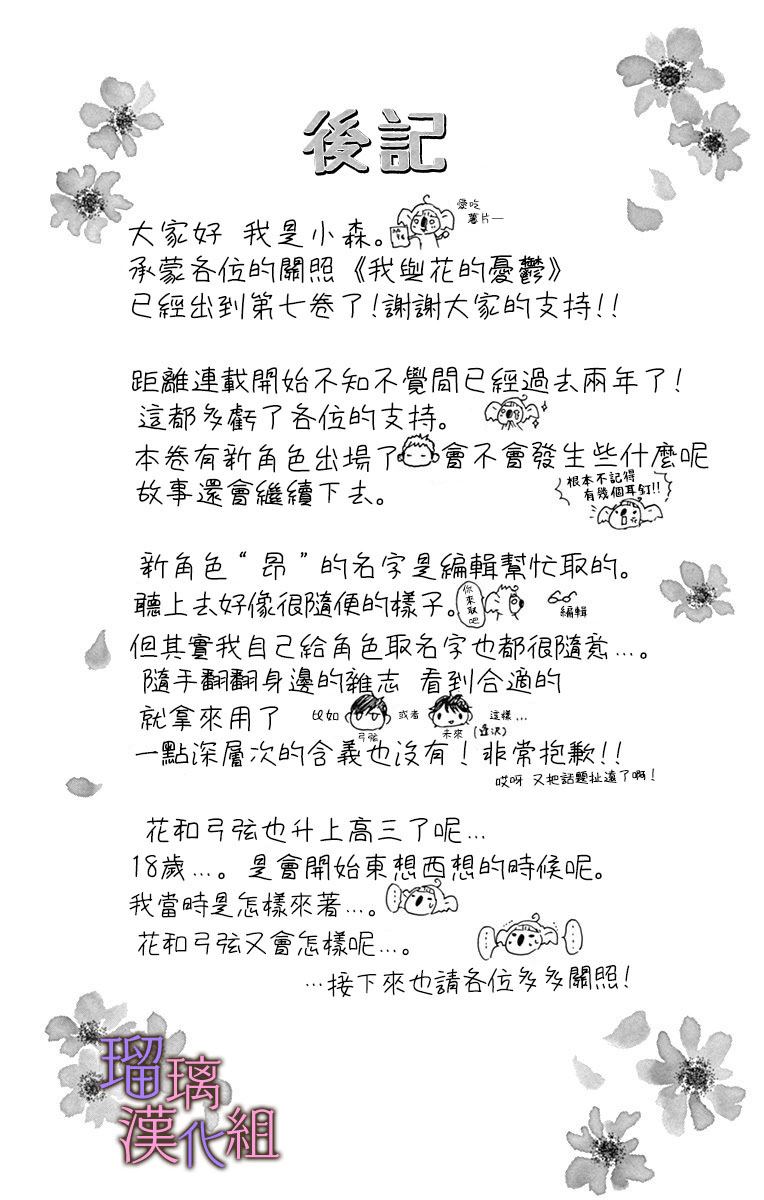 後記
大家好 我是小森。
愛吃
薯片—
承蒙各位的關照《我與花的憂鬱》
已經出到第七卷了!謝謝大家的支持!!
距離連載開始不知不覺間已經過去兩年了!
這都多虧了各位的支持。
本卷有新角色出場了 會不會發生些什麼呢
故事還會繼續下去。
根本不記得
有幾個耳釘!!
新角色“昂”的名字是編輯幫忙取的。
聽上去好像很隨便的樣子。
你來取吧
編輯
但其實我自己給角色取名字也都很隨意…。
隨手翻翻身邊的雜志 看到合適的
就拿來用了 比如 或者 這樣…
弓弦
未來
一點深層次的含義也沒有!非常抱歉!!
哎呀 又把話題扯遠了啊!
花和弓弦也升上高三了呢…
18歲…。是會開始東想西想的時候呢。
我當時是怎樣來著…。
花和弓弦又會怎樣呢…。
…接下來也請各位多多關照!
瑠璃
漢化組